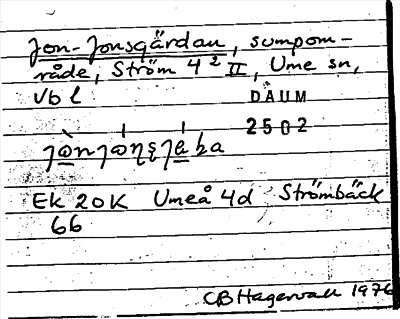 Jon-Jonsgärdan, sumpom-
råde, Ström 4² II, Ume sn,
Vbl
DAUM
2502
Ek 20K Umeå 4d Strömbäck
66
CB Hagervall 1976